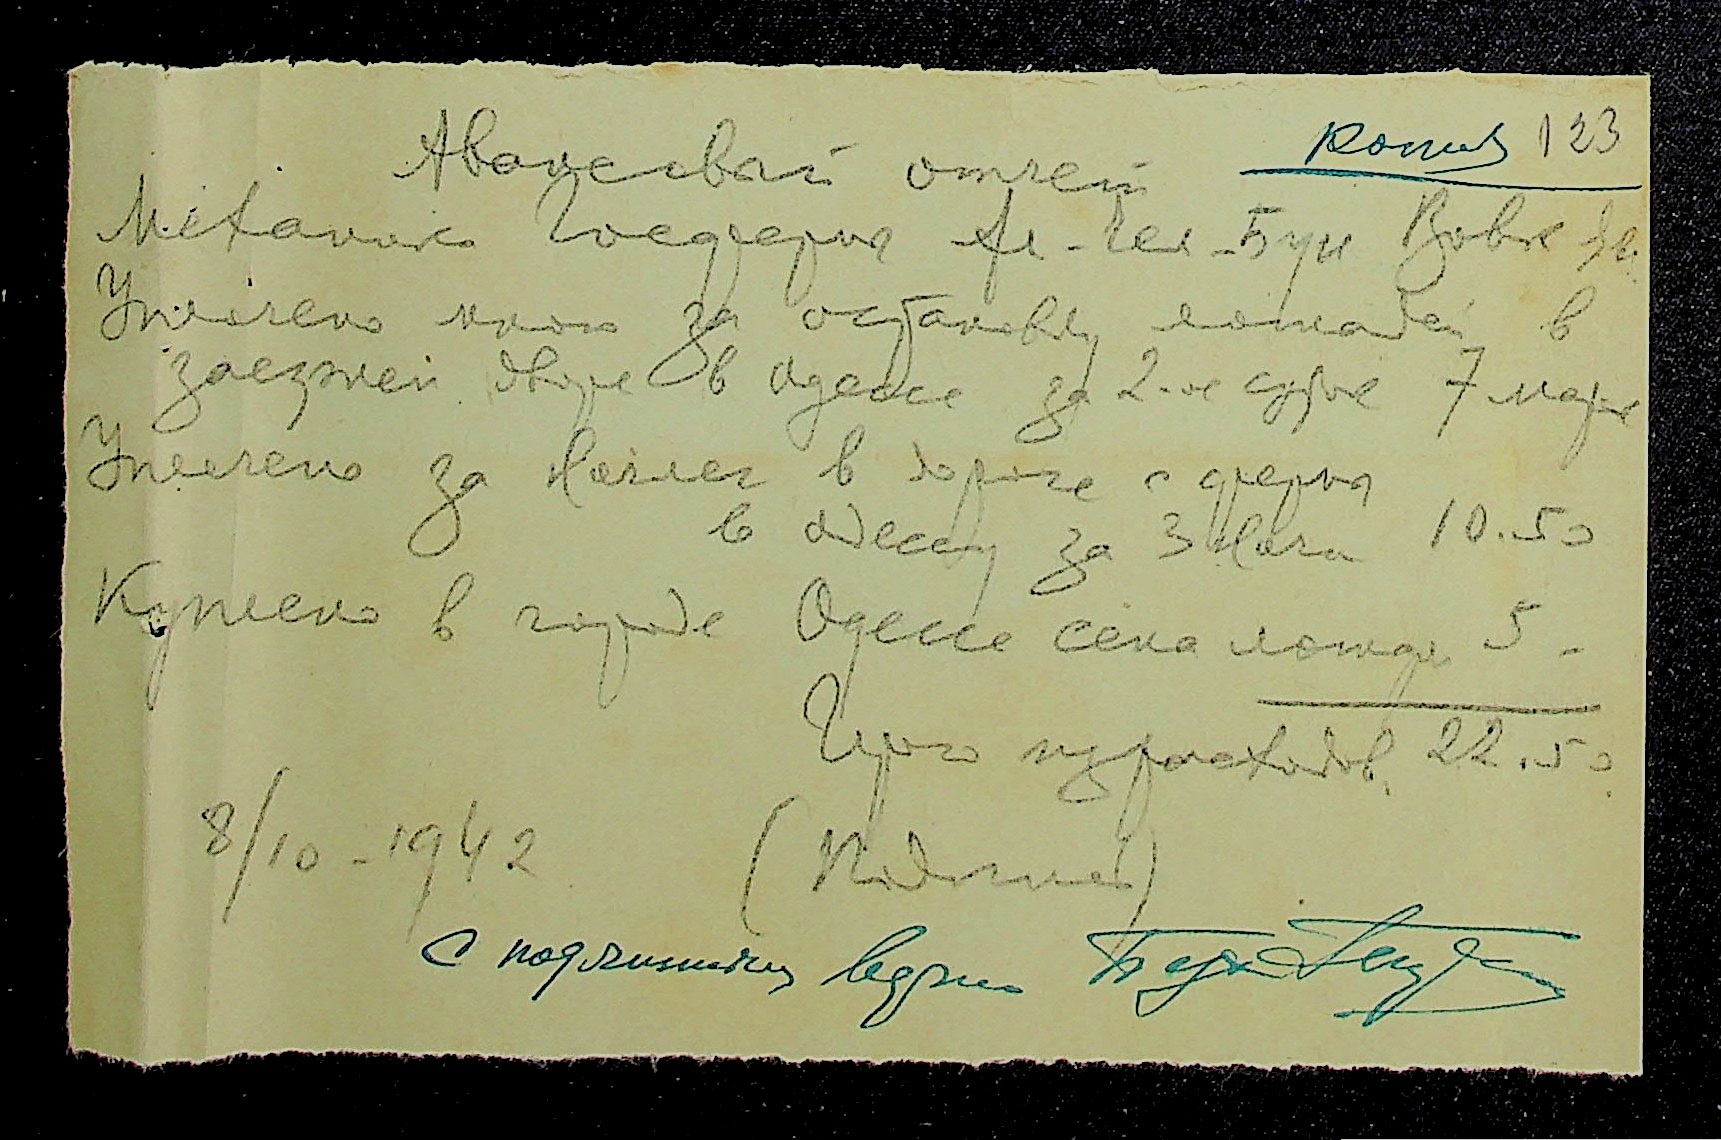 Копия 123
Авансовый отчет
Механика Госферма Ал-Гел-Бун Вовк
Уплочено мною за остановку лошадей в
заезжей дворе в Одессе за 2-ое суток 7 марк
Уплочено за Начлег в дороге с ферма
в Одессу за 3 Ночи 10.50
Куплено в городе Одессе сена лошад 5 -
Итого израсходов. 22.50
8/10-1942 (Подпись)
С подлинником верно